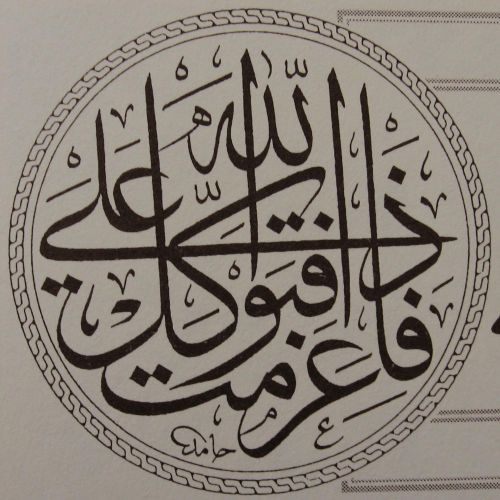 فاذا عزمت فتوكل على الله
حامد